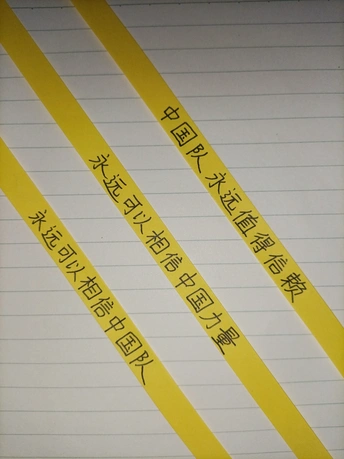 中国队永远值得信赖
永远可以相信中国力量
永远可以相信中国队